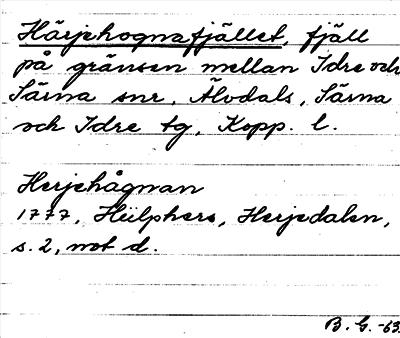 Härjehognafjället, fjäll
på gränsen mellan Idre och
Särna snr, Älvdals, Särna
och Idre tg, Kopp. l.
Herjehågnan
1777, Hülphers, Herjedalen,
s. 2, not d.
B. G. -63.